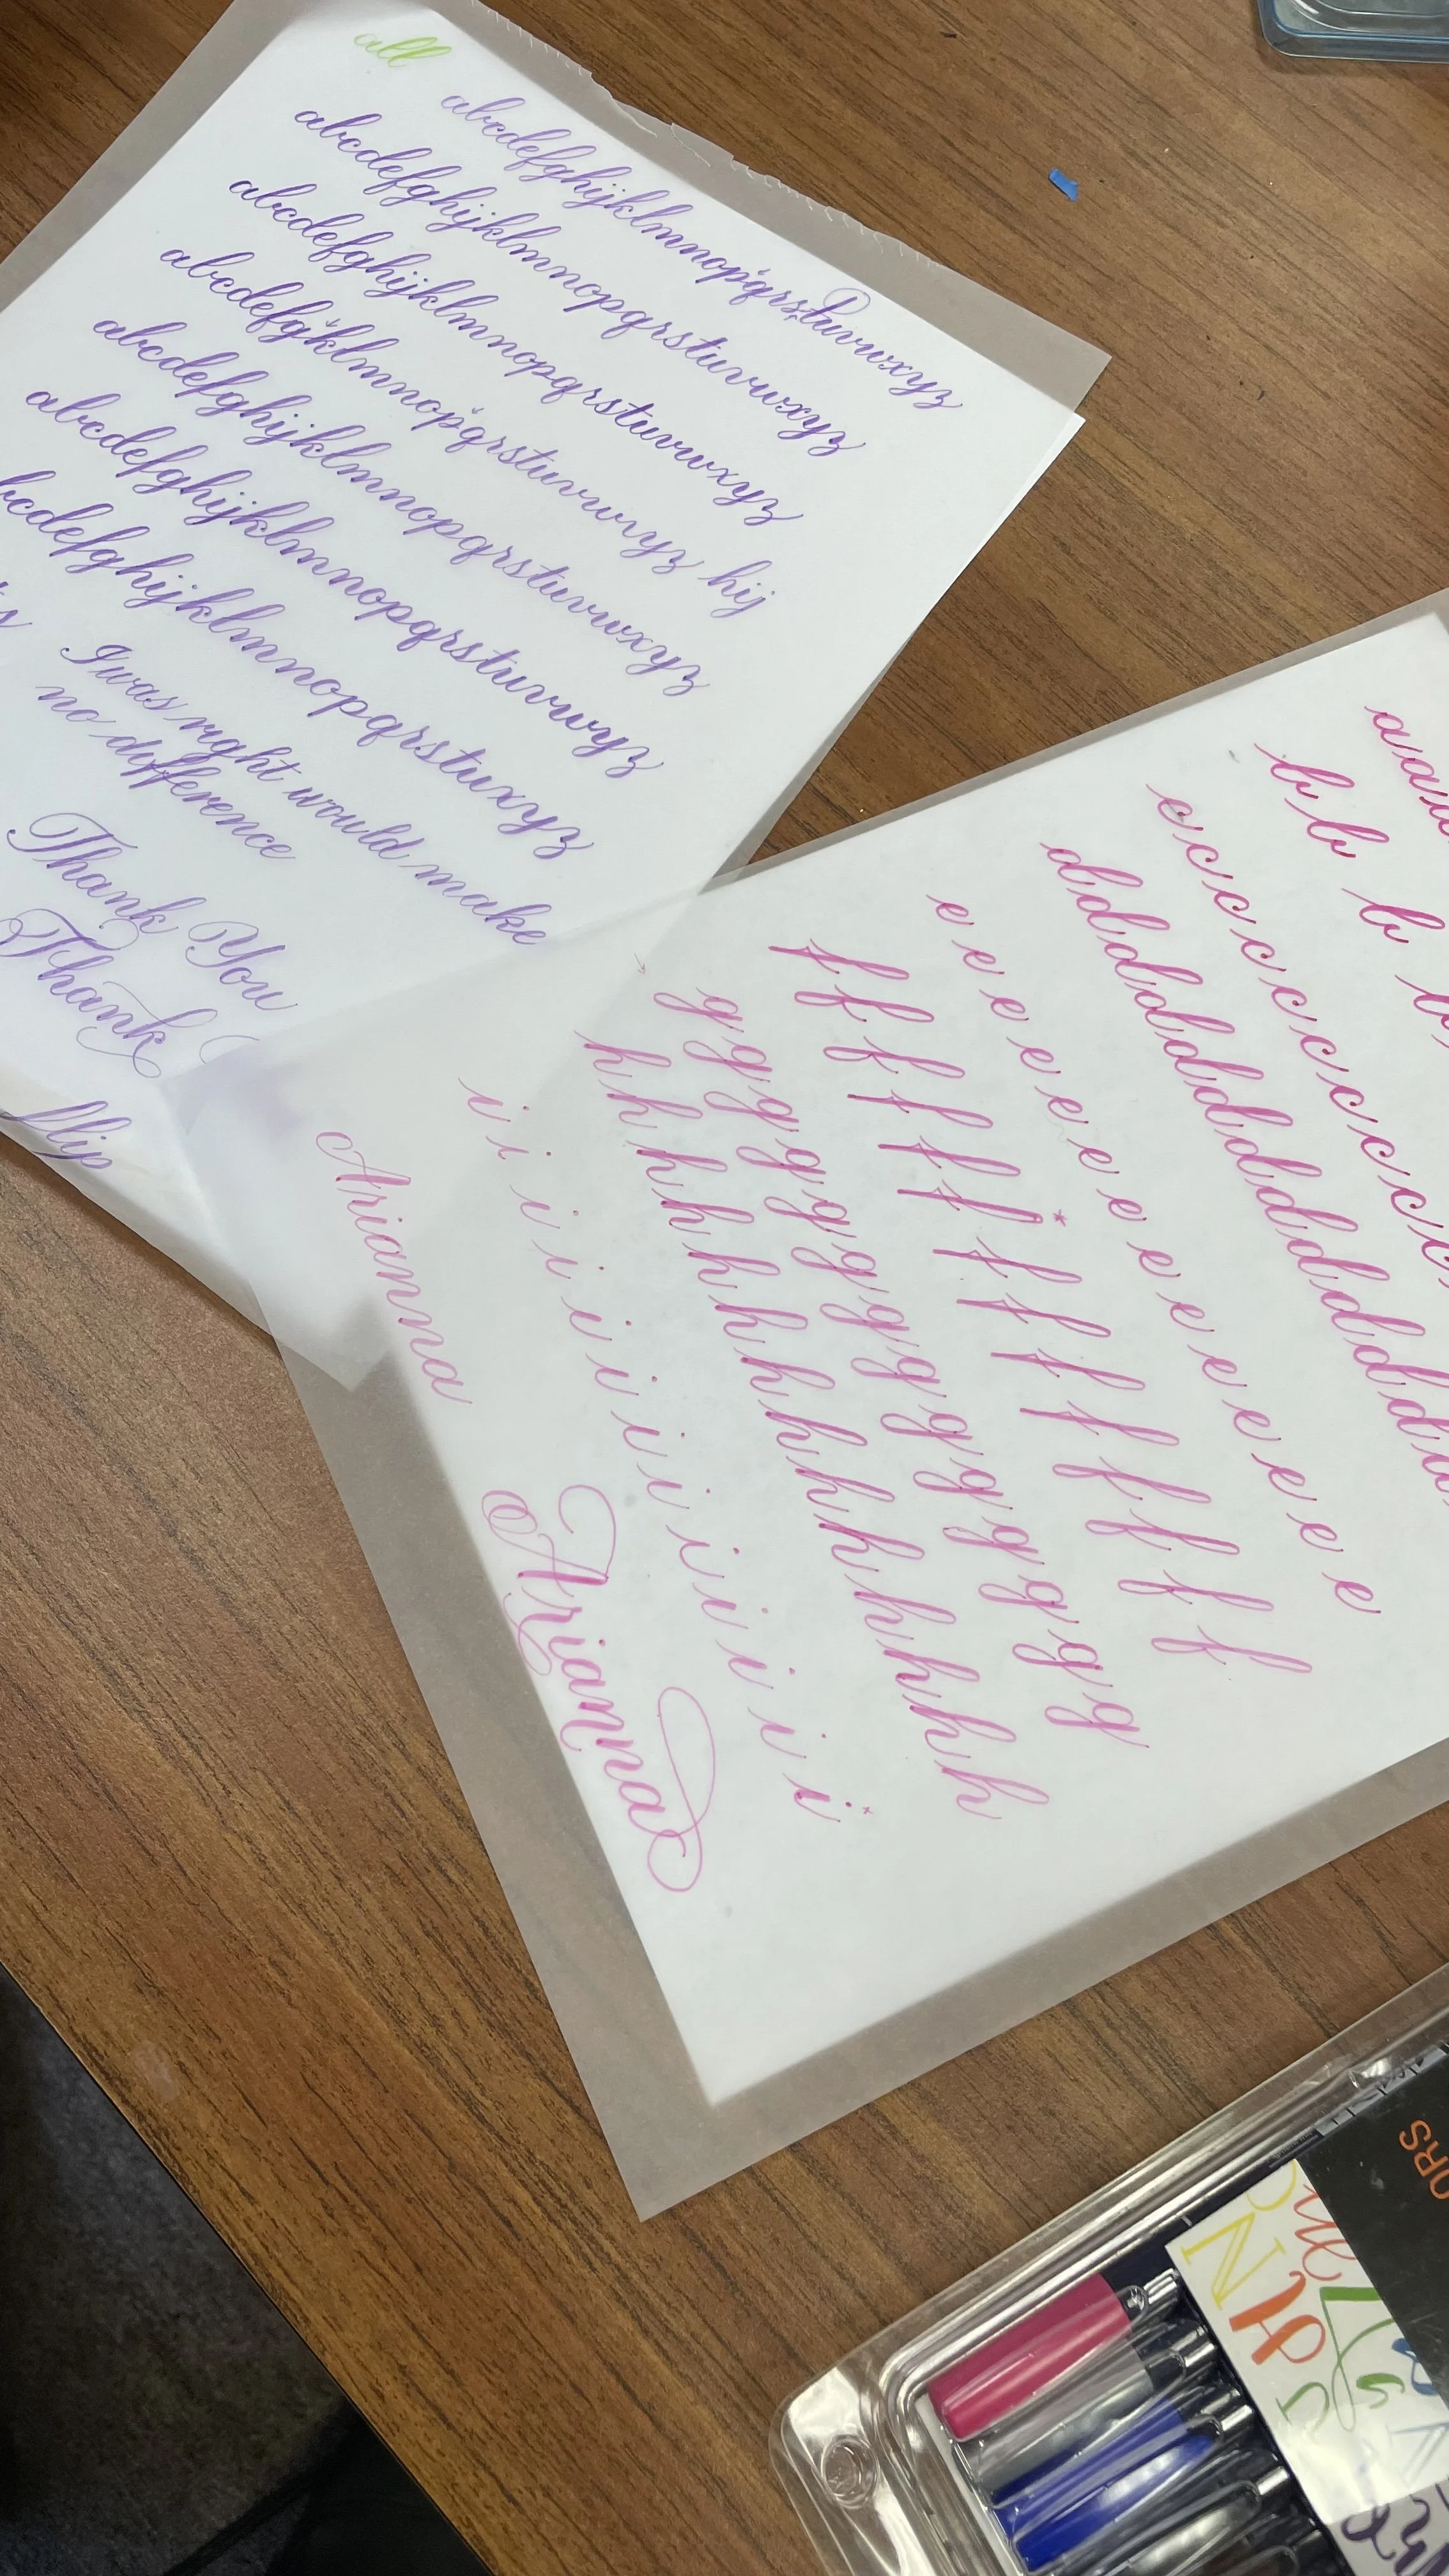 all
abcdefghijklmnopqrstuvwxyz
abcdefghijklmnopqrstuvwxyz
abcdefghijklmnopqrstuvwxyz
abcdefgklmnopqrstuvwyz hij
abcdefghijklmnopqrstuvwxyz
abcdefghijklmnopqrstuvwyz
bcdefghijklmnopqrstuxyz
I was right would make
no difference
Thank You
Thank
flip
a a a
b b b b
c c c c c c c c c c
d d d d d d d d d d d d d
e e e e e e e e e e e e e e
f f f f f f f f f f f f f f
g g g g g g g g g g g g g g
h h h h h h h h h h h h h h
i i i i i i i i i i i i i
Arianna
Arianna